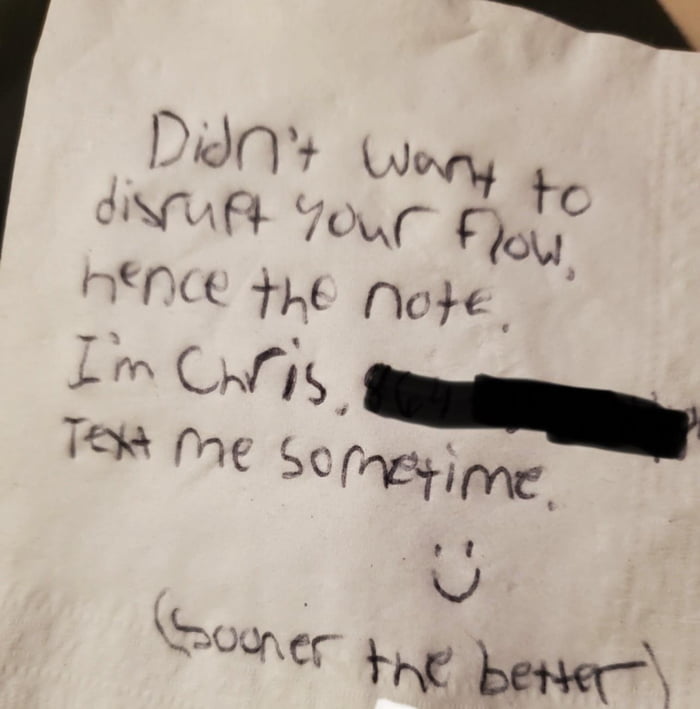 Didn't want to
disrupt your flow,
hence the note.
I'm Chris.
Text me sometime.
:)
(sooner the better)